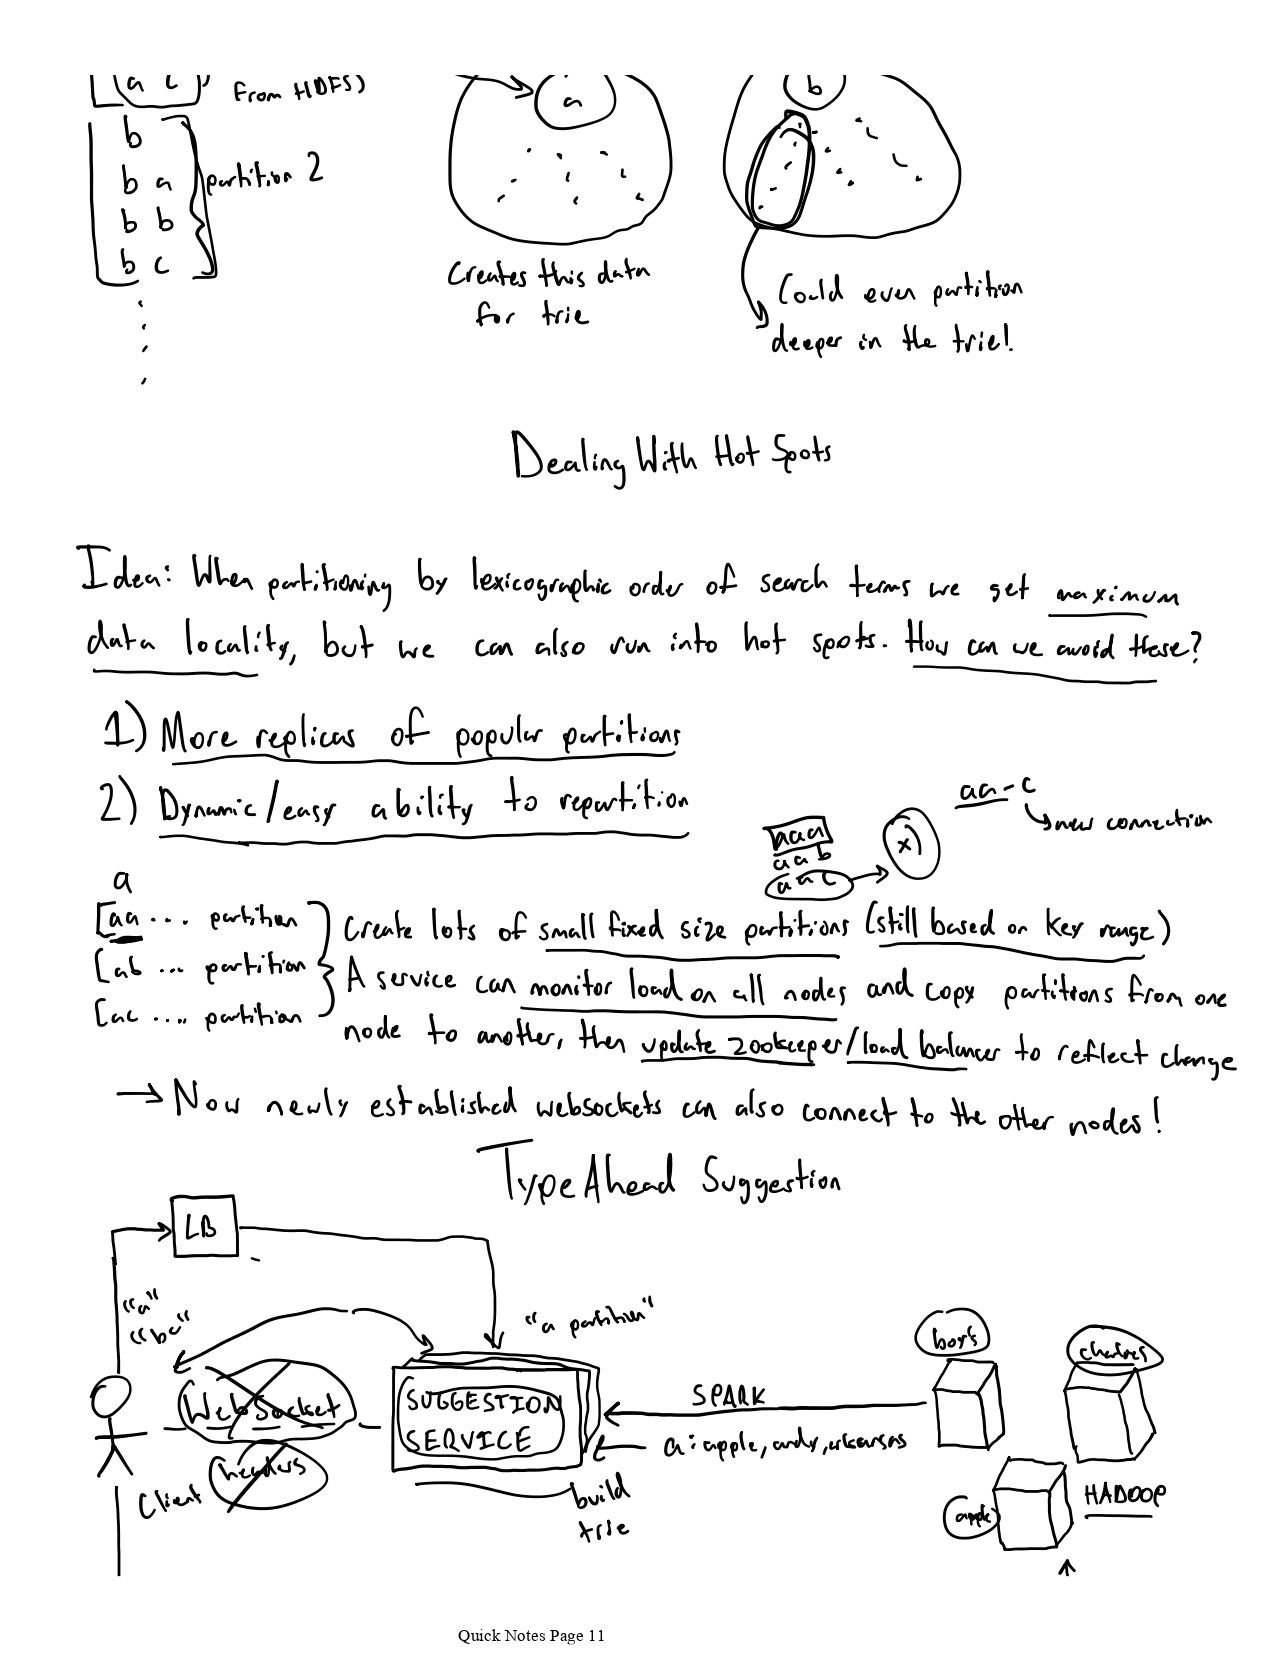 a c
from HDFS)
a
b
b
b a
partition 2
b b
b c
Creates this data
for trie
Could even partition
deeper in the trie!
Dealing With Hot Spots
Idea: When partitioning by lexicographic order of search terms we get maximum
data locality, but we can also run into hot spots. How can we avoid these?
1) More replicas of popular partitions
2) Dynamic/easy ability to repartition
aa-c
new connection
aaa
aab
aac
x
a
[aa ... partition
[ab ... partition
[ac .... partition
Create lots of small fixed size partitions (still based on key range)
A service can monitor load on all nodes and copy partitions from one
node to another, then update zookeeper/load balancer to reflect change
→ Now newly established websockets can also connect to the other nodes!
TypeAhead Suggestion
LB
"a"
"bc"
"a partition"
WebSocket
headers
Client
SUGGESTION
SERVICE
build
trie
SPARK
a: apple, andy, arkansas
boys
apple
HADOOP
Quick Notes Page 11